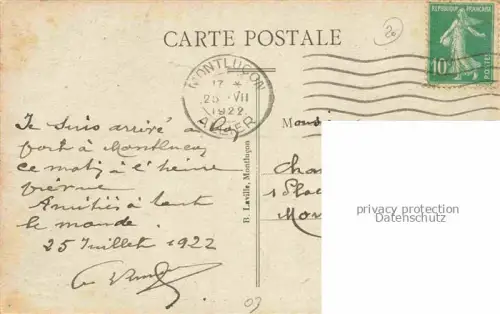 CARTE POSTALE
20
REPUBLIQUE FRANÇAISE
10
POSTES
MONTLUÇON
17 *
25 - VII
1922
ALLIER
Je suis arrivé a bon
port à Montluçon
ce matin à l'heure
prévue
Amitiés à tout
le monde.
25 Juillet 1922
B. Laville, Montluçon
Char
1 Plac
Mon
privacy protection
Datenschutz
03